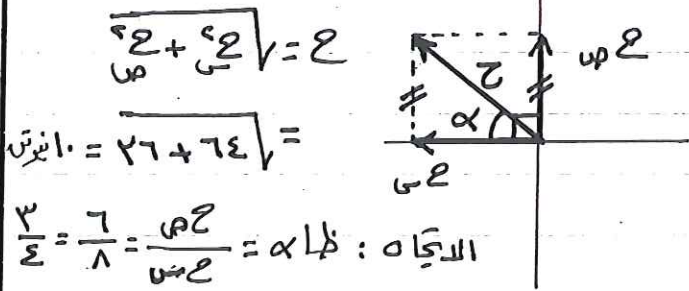 ح = √(ح²س + ح²ص)
= √(٦٤ + ٣٦) = ١٠ نيوتن
الاتجاه : ظا α = ح ص / ح س = ٦ / ٨ = ٣ / ٤
ح ص
ح
α
ح س